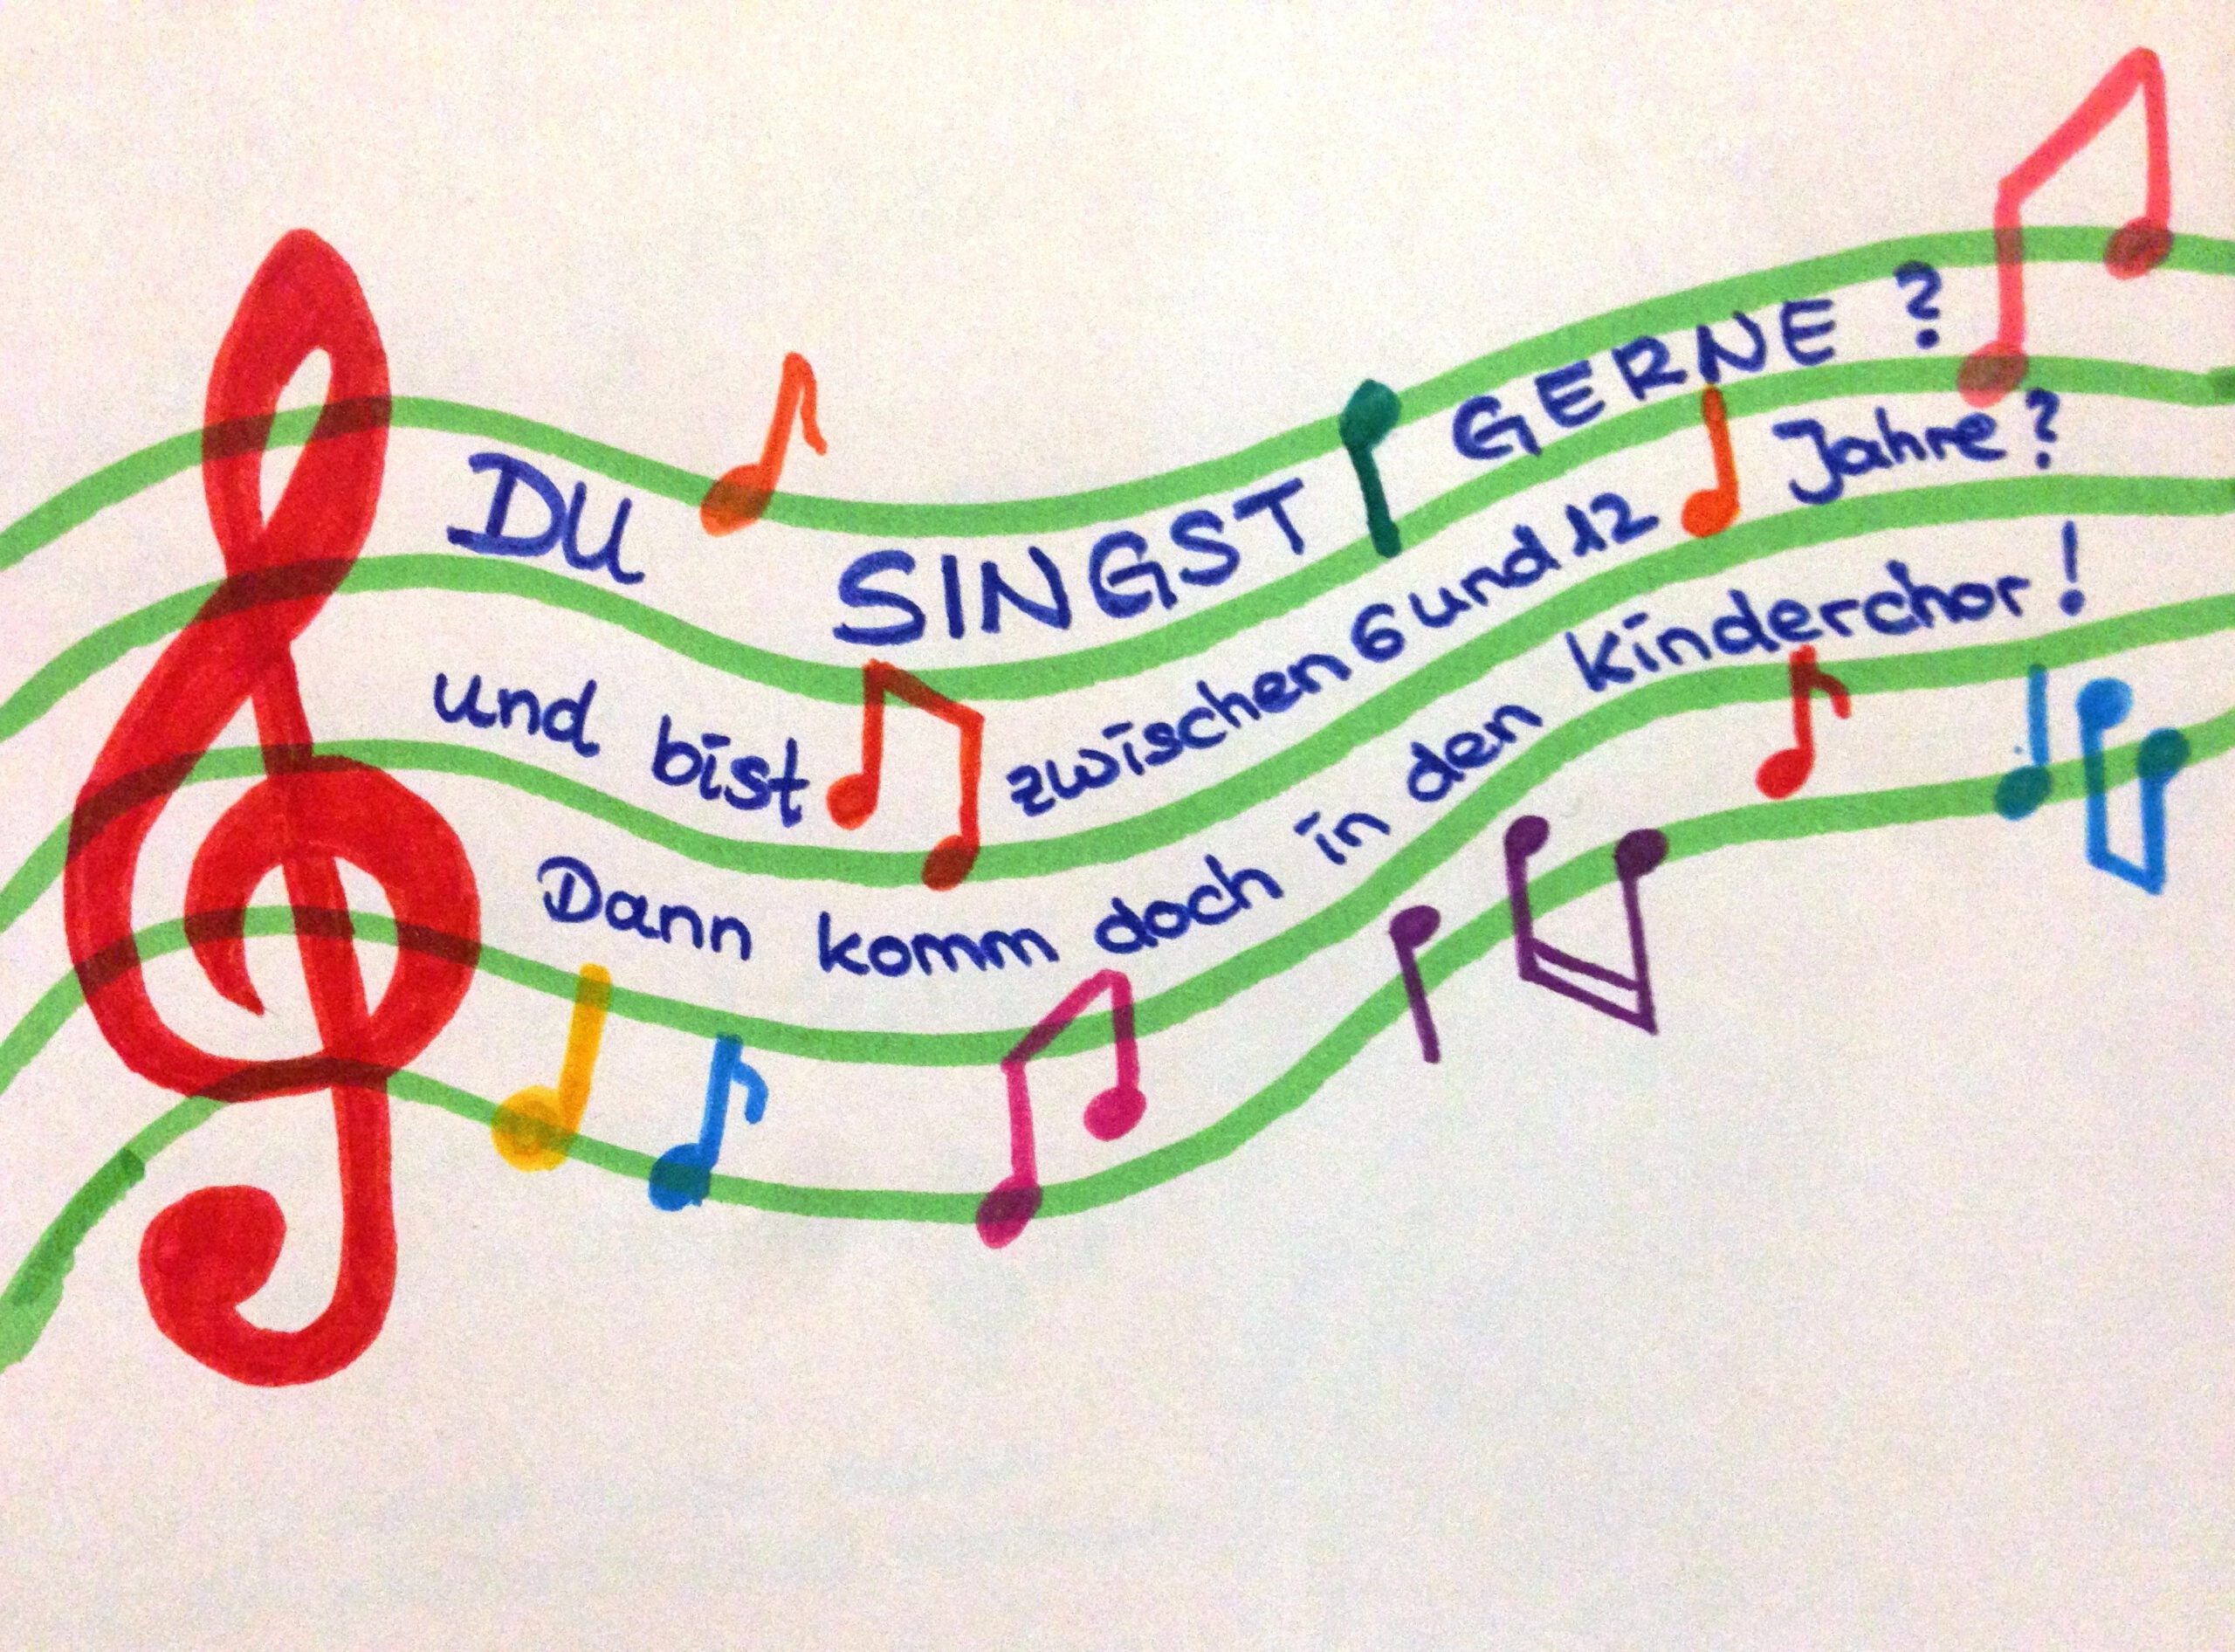 DU SINGST GERNE ?
und bist zwischen 6 und 12 Jahre ?
Dann komm doch in den Kinderchor !